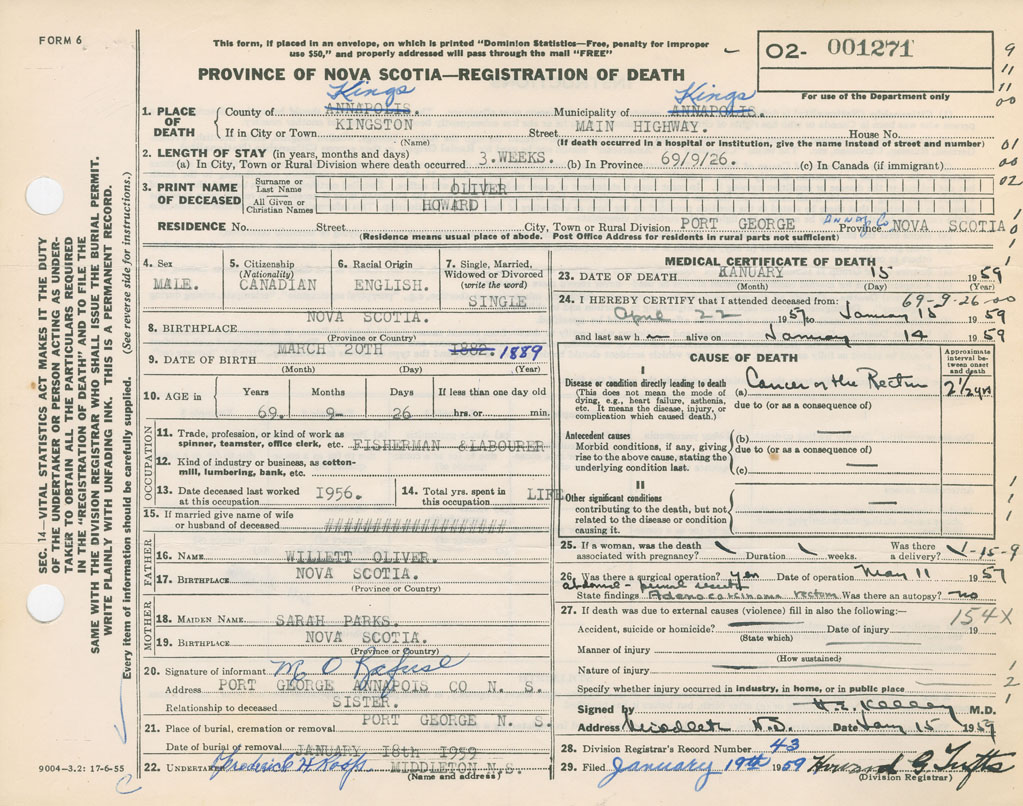 FORM 6
This form, if placed in an envelope, on which is printed "Dominion Statistics—Free, penalty for improper
use $50," and properly addressed will pass through the mail "FREE"
PROVINCE OF NOVA SCOTIA—REGISTRATION OF DEATH
O2- 001271
For use of the Department only
9
11
00
01
00
02
SEC. 14—VITAL STATISTICS ACT MAKES IT THE DUTY
OF THE UNDERTAKER OR PERSON ACTING AS UNDER-
TAKER TO OBTAIN ALL THE PARTICULARS REQUIRED
IN THE "REGISTRATION OF DEATH" AND TO FILE THE
SAME WITH THE DIVISION REGISTRAR WHO SHALL ISSUE THE BURIAL PERMIT.
WRITE PLAINLY WITH UNFADING INK. THIS IS A PERMANENT RECORD.
Every item of information should be carefully supplied. (See reverse side for instructions.)
Kings Kings
1. PLACE OF DEATH County of ANNAPOLIS. Municipality of ANNAPOLIS.
If in City or Town KINGSTON Street MAIN HIGHWAY. House No.
(Name) (If death occurred in a hospital or institution, give the name instead of street and number)
2. LENGTH OF STAY (in years, months and days)
(a) In City, Town or Rural Division where death occurred 3.WEEKS. (b) In Province 69/9/26. (c) In Canada (if immigrant)
3. PRINT NAME OF DECEASED Surname or Last Name OLIVER
All Given or Christian Names HOWARD
RESIDENCE No. Street City, Town or Rural Division PORT GEORGE Annap Co Province NOVA SCOTIA
(Residence means usual place of abode. Post Office Address for residents in rural parts not sufficient)
4. Sex MALE.
5. Citizenship (Nationality) CANADIAN
6. Racial Origin ENGLISH.
7. Single, Married, Widowed or Divorced (write the word) SINGLE
8. BIRTHPLACE NOVA SCOTIA.
(Province or Country)
9. DATE OF BIRTH MARCH 20TH 1882. 1889
(Month) (Day) (Year)
10. AGE in Years Months Days If less than one day old
69. 9- 26 hrs. or min.
OCCUPATION
11. Trade, profession, or kind of work as
spinner, teamster, office clerk, etc. FISHERMAN &LABOURER
12. Kind of industry or business, as cotton-
mill, lumbering, bank, etc.
13. Date deceased last worked at this occupation 1956. 14. Total yrs. spent in this occupation LIFE
15. If married give name of wife
or husband of deceased ####################
FATHER
16. NAME WILLETT OLIVER.
17. BIRTHPLACE NOVA SCOTIA.
(Province or Country)
MOTHER
18. MAIDEN NAME SARAH PARKS.
19. BIRTHPLACE NOVA SCOTIA.
(Province or Country)
20. Signature of informant M O Rafuse
Address PORT GEORGE ANNAPOIS CO N. S.
Relationship to deceased SISTER.
21. Place of burial, cremation or removal PORT GEORGE N. S.
Date of burial or removal JANUARY 18th 1959
22. UNDERTAKER Frederick H Roop MIDDLETON N.S.
(Name and address)
9004-3.2: 17-6-55
C
MEDICAL CERTIFICATE OF DEATH
23. DATE OF DEATH KANUARY 15 1959
(Month) (Day) (Year)
24. I HEREBY CERTIFY that I attended deceased from: 69-9-26-00
April 22 1957 to January 15 1959
and last saw h m alive on January 14 1959
CAUSE OF DEATH
Approximate interval between onset and death
I
Disease or condition directly leading to death
(This does not mean the mode of
dying, e.g., heart failure, asthenia,
etc. It means the disease, injury, or
complication which caused death.)
(a) Cancer of the Rectum 2 1/2 yrs
due to (or as a consequence of)
Antecedent causes
Morbid conditions, if any, giving
rise to the above cause, stating the
underlying condition last.
(b)
due to (or as a consequence of)
(c)
II
Other significant conditions
contributing to the death, but not
related to the disease or condition
causing it.
25. If a woman, was the death associated with pregnancy? Duration weeks. Was there a delivery? 1-15-9
26. Was there a surgical operation? yes Date of operation May 11 1957
State findings Adenocarcinoma rectum Was there an autopsy? no
27. If death was due to external causes (violence) fill in also the following:—
154X
Accident, suicide or homicide? Date of injury 19
(State which)
Manner of injury
(How sustained)
Nature of injury
Specify whether injury occurred in industry, in home, or in public place
Signed by H. E. Kelley M.D.
Address Middleton N.S. Date Jany 15 1959
28. Division Registrar's Record Number 43
29. Filed January 19th 1959 Howard G. Tufts
(Division Registrar)